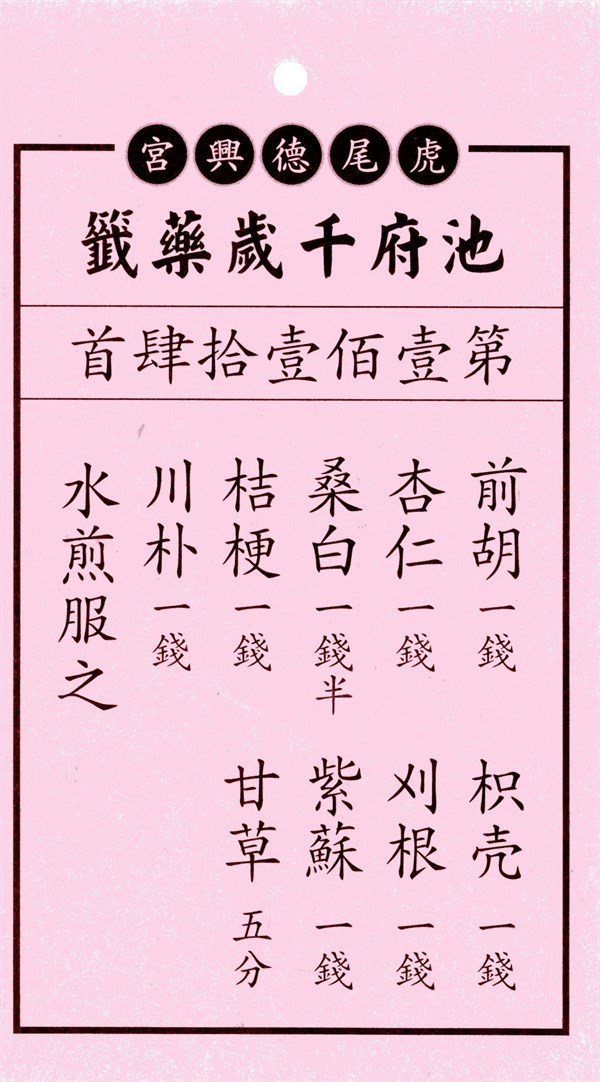 虎尾德興宮
池府千歲藥籤
第壹佰壹拾肆首
前胡一錢
杏仁一錢
桑白一錢半
桔梗一錢
川朴一錢
水煎服之
枳壳一錢
刈根一錢
紫蘇一錢
甘草五分